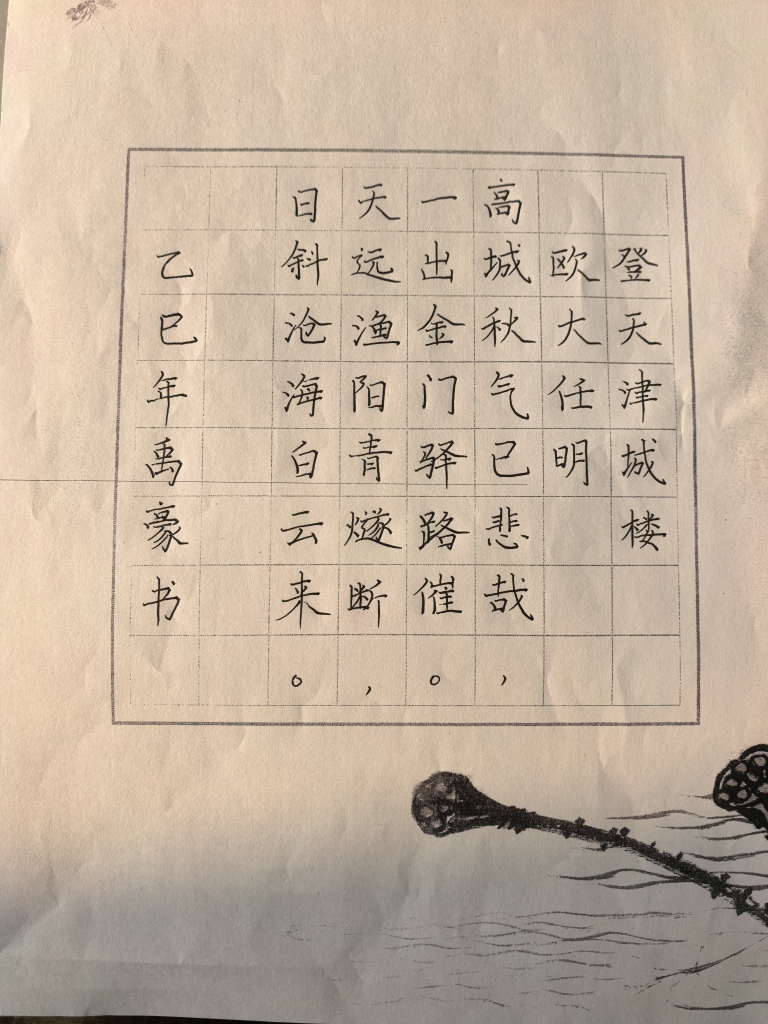 登天津城楼
欧大任明
高城秋气已悲哉，
一出金门驿路催。
天远渔阳青燧断，
日斜沧海白云来。
乙巳年禹豪书